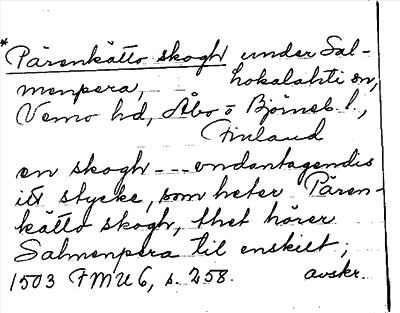 *Pärenkätto skogh under Sal-
menpera, hokalahti sn,
Vemo hd, Åbo o Björneb. l.,
Finland
en skogh --- vndantagendis
itt stycke, som heter Pären-
kätto skogh, thet hörer
Salmenpera til enskilt;
1503 FMU 6, s. 258. avskr.